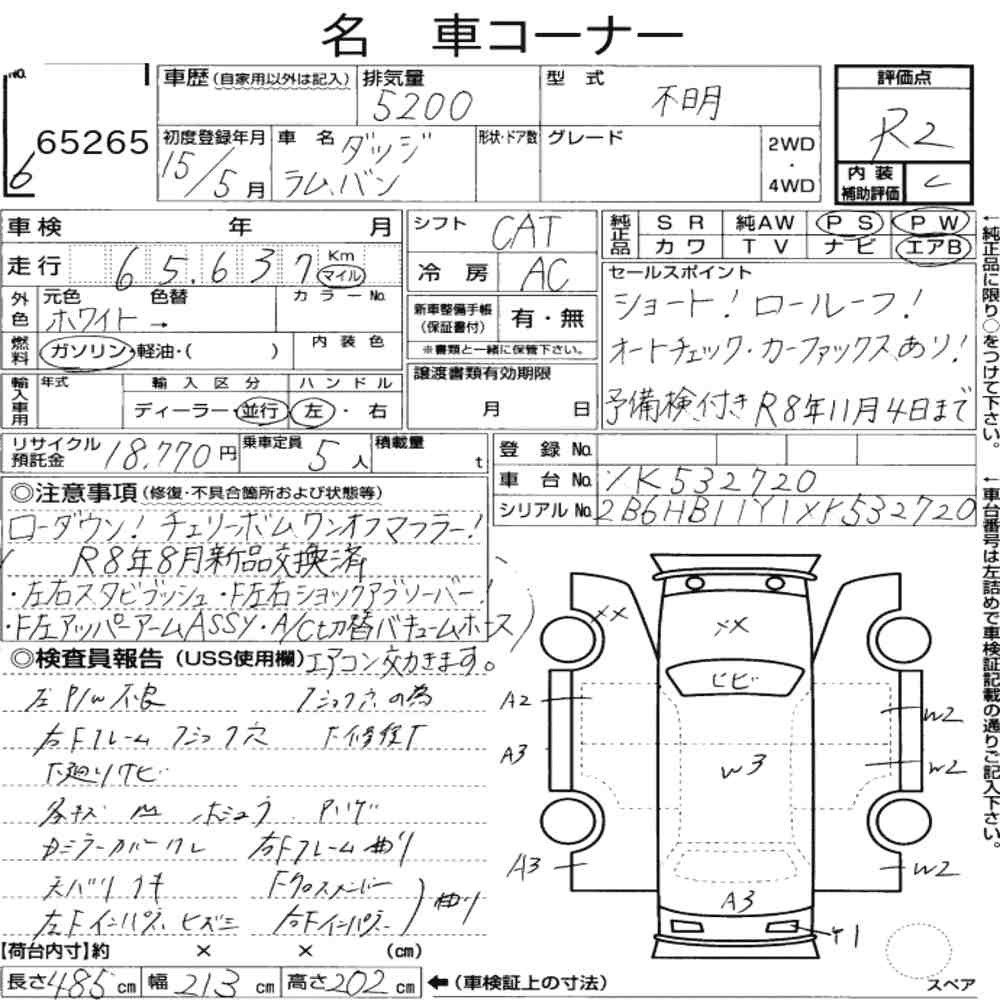 名 車コーナー
No.
65265
6
車歴(自家用以外は記入)
排気量
5200
型式
不明
評価点
R2
初度登録年月
15/5月
車名
ダッジ
ラムバン
形状・ドア数
グレード
2WD
・
4WD
内装
補助評価
C
車検 年 月
シフト
CAT
純正品
SR 純AW PS PW
カワ TV ナビ エアB
走行 65,637 Km
マイル
冷房
AC
セールスポイント
ショート!ロールーフ!
オートチェック・カーファックスあり!
予備検付きR8年11月4日まで
外色
元色 色替
ホワイト→
カラーNo.
新車整備手帳
(保証書付)
有・無
※書類と一緒に保管下さい。
燃料
ガソリン・軽油・( )
内装色
譲渡書類有効期限
月 日
輸入車用
年式
輸入区分
ディーラー・並行
ハンドル
左・右
リサイクル
預託金
18,770円
乗車定員
5人
積載量
t
登録No.
車台No.
YK532720
シリアルNo.
2B6HB11Y1XK532720
◎注意事項(修復・不具合箇所および状態等)
ローダウン!チェリーボムワンオフマフラー!
R8年8月新品交換済
・左右スタビブッシュ・F左右ショックアブソーバー!
・F左アッパーアームASSY・A/C切替バキュームホース)
◎検査員報告(USS使用欄)
エアコン効きます。
左P/W不良
フショク穴の為
右Fフレームフショク穴
下修復了
下廻りサビ
各キズ 凹 ホシュラ Pハゲ
右Fフレーム曲り
天バリ
Fクロスメンバー
左Fインパネ ヒズミ
右Fインパネ
曲り
【荷台内寸】約 × × (cm)
長さ485cm 幅213cm 高さ202cm
←(車検証上の寸法)
XX
XX
ヒビ
A2
A3
A3
W2
W2
W2
W3
A3
Y1
スペア
←純正品に限り○をつけて下さい。
←車台番号は左詰めで車検証記載の通りご記入下さい。